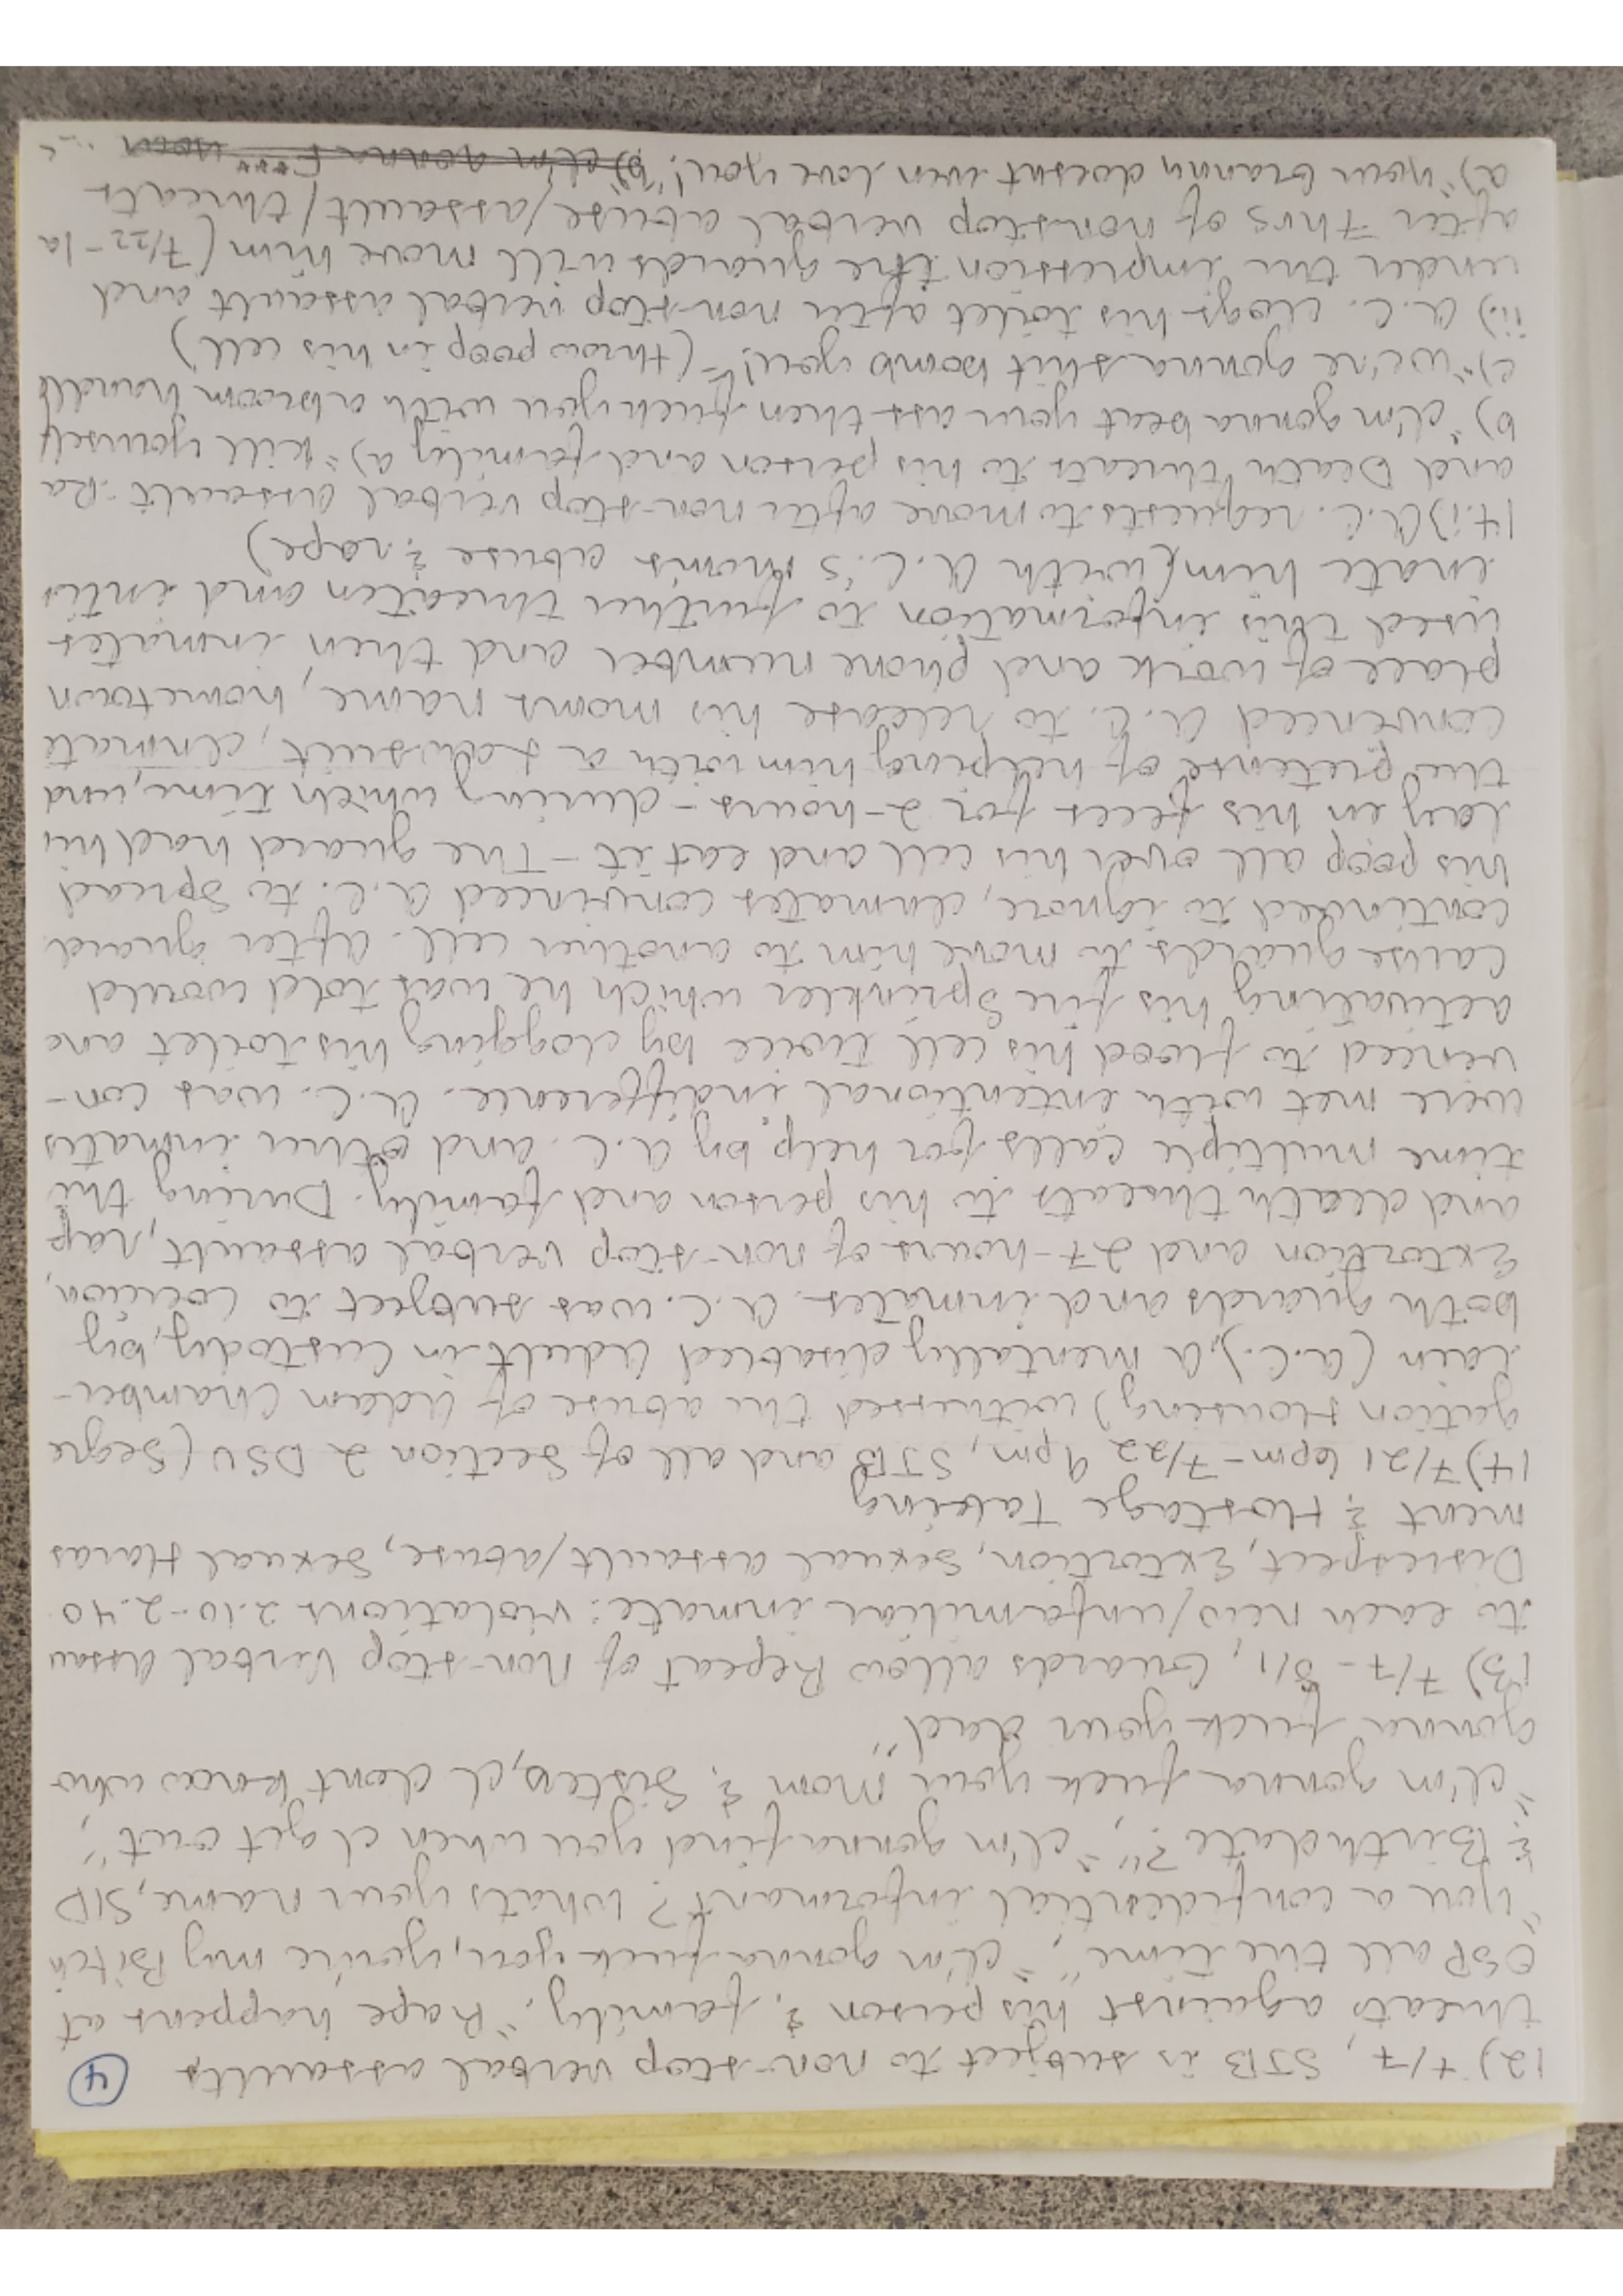 ④
12) 7/7, STB is subject to non-stop verbal assaults
threats against his person & family. "Rape happens at
OSP all the time", "I'm gonna fuck you, you're my Bitch
"you a confidential informant? Whats your name, SID
& Birthdate?", "I'm gonna find you when I get out",
"I'm gonna fuck your mom & sister, I dont know who
gonna fuck your dad"
13) 7/7 - 8/1, Guards allow Repeat of Non-stop Verbal Assau
to each new/unfamiliar inmate: violations 2.10-2.40
Disrespect, Extortion, Sexual assault/abuse, Sexual Haras
ment & Hostage Taking
14) 7/21 6pm - 7/22 9pm, STB and all of Section 2 DSU (Segre
gation Housing) witnessed the abuse of Adam Chamber-
lain (A.C.), A mentally disabled Adult in Custody, by
both guards and inmates. A.C. was subject to Cocion,
Extortion and 27-hours of non-stop verbal assault, rap
and death threats to his person and family. During thi
time multiple calls for help by A.C. and other inmates
were met with intentional indifference. A.C. was con-
vinced to flood his cell twice by clogging his toilet and
activating his fire sprinkler which he was told would
cause guards to move him to another cell. After guard
continued to ignore, inmates convinced A.C. to spread
his poop all over his cell and eat it - The guard had hi
lay in his feces for 2-hours - during which time, und
the pretense of helping him with a Lawsuit, inmate
convinced A.C. to release his moms name, hometown
place of work and phone number and then inmates
used this information to further threaten and inti
mate him (with A.C.'s moms abuse & rape)
14.i) A.C. requests to move after non-stop verbal assault. Ra
and Death threats to his person and family a) "kill yourself
b) "I'm gonna beat your ass then fuck you with a broom handle
c) "we're gonna shit bomb you!" - (throw poop in his cell)
ii) A.C. clogs his toilet after non-stop verbal assault and
under the impression the guards will move him (7/22 - 1a
after 7hrs of non-stop verbal abuse/assault/threats
a) "your Granny doesnt even love you!",